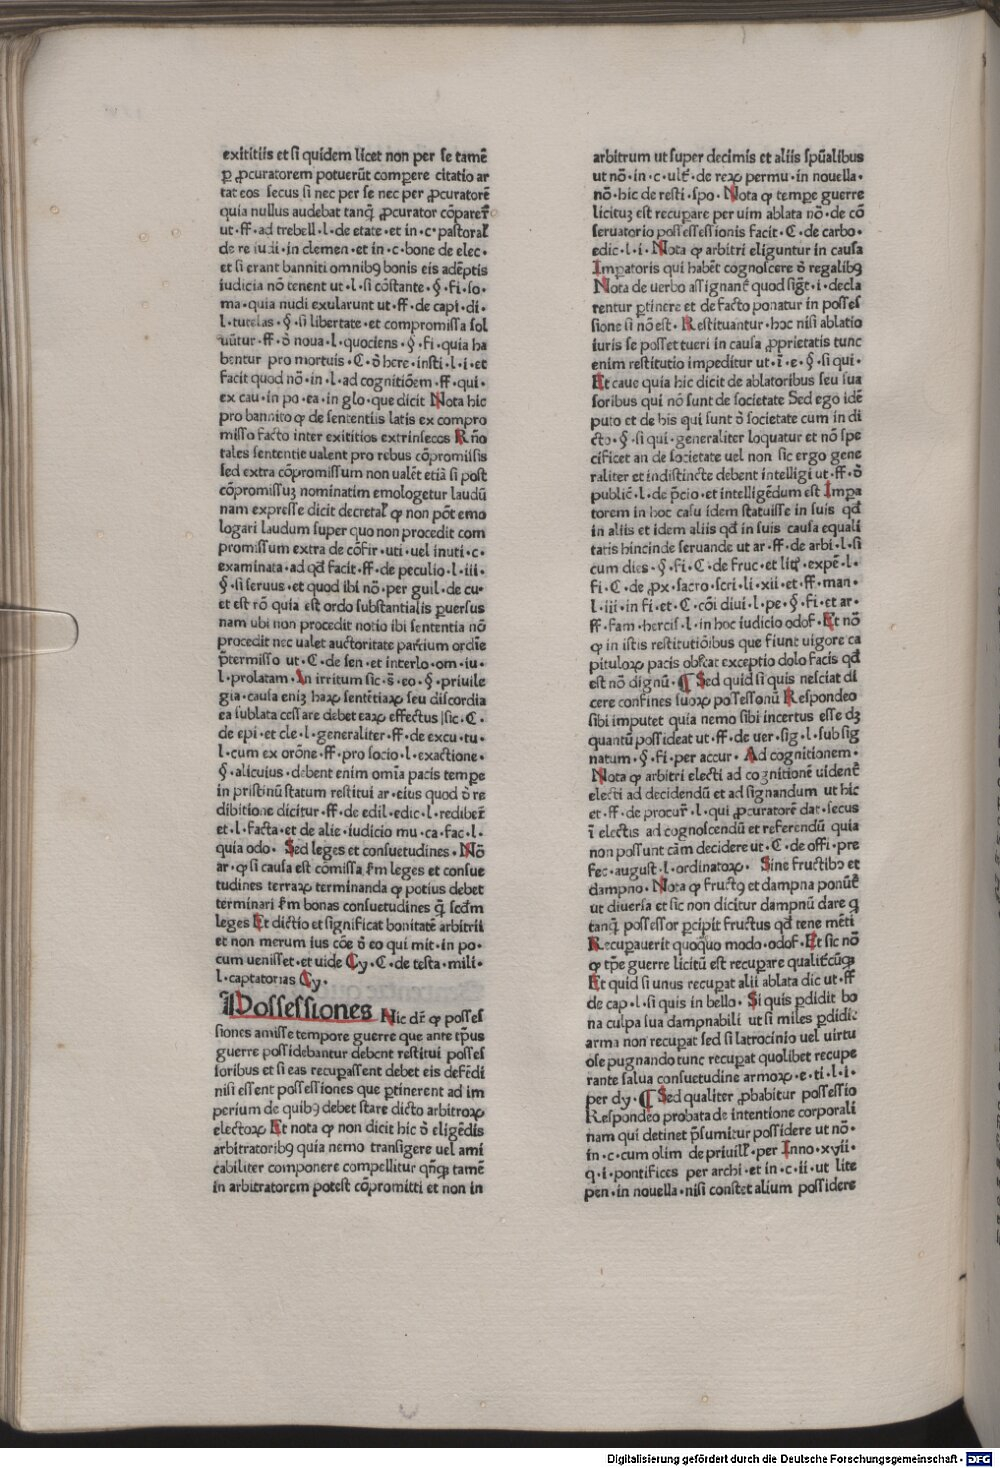 exititiis et si quidem licet non per se tamē
ꝑ ꝓcuratorem potuerūt compere citatio ar
tat eos secus si nec per se nec per ꝓcuratorē
quia nullus audebat tanq̄ ꝓcurator cōparer̄
ut · ff · ad trebell · l · de etate · et in · c · pastoral̄
de re iudi · in clemen · et in · c · bone de elec ·
et si erant banniti omnibꝰ bonis eis adēptis
iudicia nō tenent ut · l · si cōstante · § · fi · so ·
ma · quia nudi exularunt ut · ff · de capi · di ·
l · tutelas · § · si libertate · et compromissa sol
uūtur · ff · ꝺ̄ noua · l · quociens · § · fi · quia ha
bentur pro mortuis · C · ꝺ̄ here · insti · l · i · et
facit quod nō · in · l · ad cognitiōem · ff · qui ·
ex cau · in po · ea · in glo · que dicit Nota hic
pro bannito ꝙ de sententiis latis ex compro
misso facto inter exititios extrinsecos Rn̄o
tales sententie ualent pro rebus cōpromissis
sed extra cōpromissum non ualēt etiā si post
cōpromissuꝫ nominatim emologetur laudū
nam expresse dicit decretal̄ ꝙ non pōt emo
logari laudum super quo non procedit com
promissum extra de cōfir · uti · uel inuti · c ·
examinata · ad qd̄ facit · ff · de peculio · l · iii ·
§ · si seruus · et quod ibi nō · per guil · de cu ·
et est rō quia est ordo substantialis ꝑuersus
nam ubi non procedit notio ibi sententia nō
procedit nec ualet auctoritate partium ordīe
p̄termisso ut · C · de sen · et interlo · om · iu ·
l · prolatam · In irritum sic · s̄ · eo · § · priuile
gia · causa eniꝫ haꝝ sentētiaꝝ seu discordia
ea sublata cessare debet eaꝝ effectus sic · C ·
de epi · et cle · l · generaliter · ff · de excu · tu ·
l · cum ex orōne · ff · pro socio · l · exactione ·
§ · alicuius · debent enim omīa pacis tempe
in pristinū statum restitui ar · eius quod ꝺ̄ re
dibitione dicitur · ff · de edil · edic · l · rediber̄
et · l · facta · et de alie · iudicio mu · ca · fac · l ·
quia odo · Sed leges et consuetudines · Nō
ar · ꝙ si causa est cōmissa fm̄ leges et consue
tudines terraꝝ terminanda ꝙ potius debet
terminari fm̄ bonas consuetudines q̄ scd̄m
leges Et dictio et significat bonitatē arbitrii
et non merum ius cōe ꝺ̄ eo qui mit · in po ·
cum uenisset · et uide Cy · C · de testa · mili ·
l · captatorias Cy ·
Possessiones Hic dr̄ ꝙ posses
siones amisse tempore guerre que ante tp̄us
guerre possidebantur debent restitui posses
soribus et si eas recuꝑassent debet eis defēdi
nisi essent possessiones que ꝑtinerent ad im
perium de quibꝰ debet stare dicto arbitroꝝ
electoꝝ Et nota ꝙ non dicit hic ꝺ̄ eligēdis
arbitratoribꝰ quia nemo transigere uel ami
cabiliter componere compellitur qn̄qꝫ tamē
in arbitratorem potest cōpromitti et non in
arbitrum ut super decimis et aliis spūalibus
ut nō · in · c · ult̄ · de reꝝ permu · in nouella ·
nō · hic de resti · spo · Nota ꝙ tempe guerre
licituꝫ est recuꝑare per uim ablata nō · de cō
seruatorio possessessionis facit · C · de carbo ·
edic · l · i · Nota ꝙ arbitri eliguntur in causa
Imꝑatoris qui habēt cognoscere ꝺ̄ regalibꝰ
Nota de uerbo assignant̄ quod sigt̄ · i · decla
rentur ꝑtinere et de facto ponatur in posses
sione si nō est · Restituantur · hoc nisi ablatio
iuris se posset tueri in causa ꝓprietatis tunc
enim restitutio impeditur ut · ī · e · § · si qui ·
Et caue quia hic dicit de ablatoribus seu sua
soribus qui nō sunt de societate Sed ego idē
puto et de his qui sunt ꝺ̄ societate cum in di
cto · § · si qui · generaliter loquatur et nō spe
cificet an de societate uel non sic ergo gene
raliter et indistincte debent intelligi ut · ff · ꝺ̄
public̄ · l · de p̄cio · et intelligēdum est Impa
torem in hoc casu idem statuisse in suis qd̄
in aliis et idem aliis qd̄ in suis causa equali
tatis hincinde seruande ut ar · ff · de arbi · l · si
cum dies · § · fi · C · de fruc · et lit̄ · expē · l ·
fi · C · de ꝓx · sacro · scri · l · xii · et · ff · man ·
l · iii · in fi · et · C · cōi diui · l · pe · § · fi · et ar ·
ff · fam · hercis · l · in hoc iudicio odof · Et nō
ꝙ in istis restitutiōibus que fiunt uigore ca
pituloꝝ pacis obstat exceptio dolo facis qd̄
est nō dignū · ¶ Sed quid si quis nesciat di
cere confines suoꝝ possessionū Respondeo
sibi imputet quia nemo sibi incertus esse dꝫ
quantū possideat ut · ff · de uer · sig · l · sub sig
natum · § · fi · per accur · Ad cognitionem ·
Nota ꝙ arbitri electi ad cognitionē uident̄
electi ad decidendū et ad signandum ut hic
et · ff · de procur̄ · l · qui ꝓcuratorē dat · secus
ī electis ad cognoscendū et referendū quia
non possunt cām decidere ut · C · de offi · pre
fec · august · l · ordinatoꝝ · Sine fructibꝰ et
dampno · Nota ꝙ fructꝰ et dampna ponūt̄
ut diuersa et sic non dicitur dampnū dare ꝗ
tanq̄ possessor ꝑcipit fructus qd̄ tene mēti
Recuꝑauerit quoquo modo · odof · Et sic nō
ꝙ tp̄e guerre licitū est recuꝑare qualit̄cūqꝫ
Et quid si unus recuꝑat alii ablata dic ut · ff
de cap · l · si quis in bello · Si quis ꝑdidit bo
na culpa sua dampnabili ut si miles ꝑdidit
arma non recuꝑat sed si latrocinio uel uirtu
ose pugnando tunc recuꝑat quolibet recupe
rante salua consuetudine armoꝝ · e · ti · l · i ·
per dy · ¶ Sed qualiter ꝓbabitur possessio
Respondeo probata de intentione corporali
nam qui detinet p̄sumitur possidere ut nō ·
in · c · cum olim de priuil̄ · per Inno · xvii ·
q · i · pontifices per archi · et in · c · ii · ut lite
pen · in nouella · nisi constet alium possidere
Digitalisierung gefördert durch die Deutsche Forschungsgemeinschaft · DFG